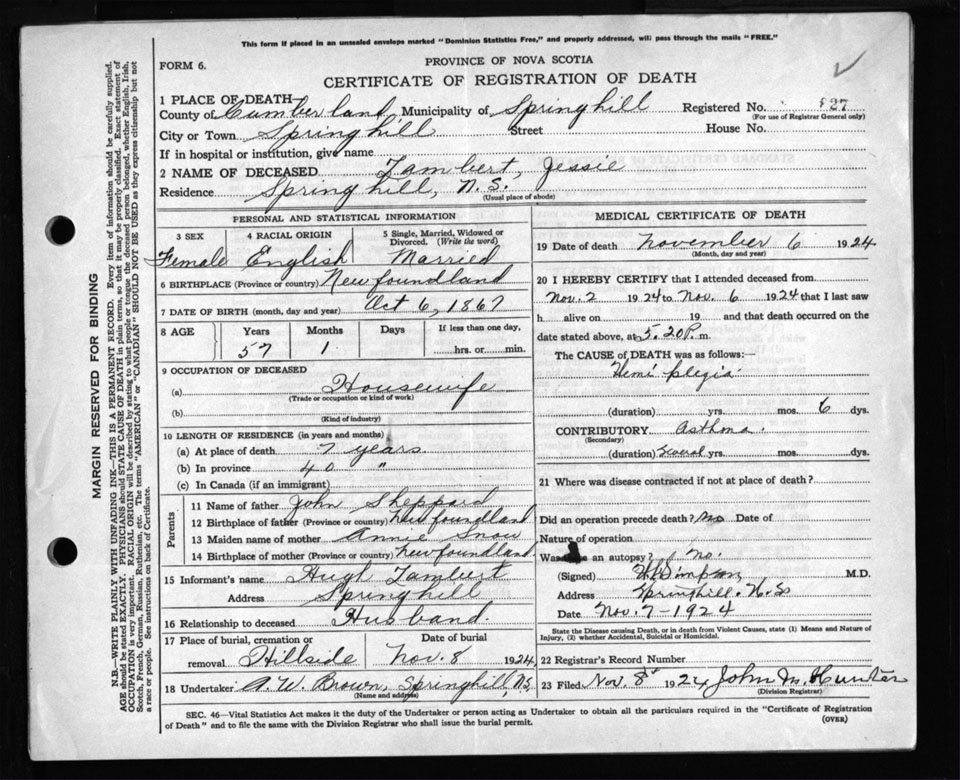 This form if placed in an unsealed envelope marked "Dominion Statistics Free," and properly addressed, will pass through the mails "FREE."
FORM 6.
PROVINCE OF NOVA SCOTIA
CERTIFICATE OF REGISTRATION OF DEATH
1 PLACE OF DEATH
County of Cumberland Municipality of Springhill Registered No. 827
(For use of Registrar General only)
City or Town Springhill Street House No.
If in hospital or institution, give name
2 NAME OF DECEASED Lambert, Jessie
Residence Springhill, N.S.
(Usual place of abode)
PERSONAL AND STATISTICAL INFORMATION
3 SEX 4 RACIAL ORIGIN 5 Single, Married, Widowed or Divorced. (Write the word)
Female English Married
6 BIRTHPLACE (Province or country) Newfoundland
7 DATE OF BIRTH (month, day and year) Oct 6, 1867
8 AGE Years Months Days If less than one day,
57 1 hrs. or min.
9 OCCUPATION OF DECEASED
(a) Housewife
(Trade or occupation or kind of work)
(b)
(Kind of industry)
10 LENGTH OF RESIDENCE (in years and months)
(a) At place of death 7 years
(b) In province 40 "
(c) In Canada (if an immigrant)
Parents
11 Name of father John Sheppard
12 Birthplace of father (Province or country) Newfoundland
13 Maiden name of mother Annie Snow
14 Birthplace of mother (Province or country) Newfoundland
15 Informant's name Hugh Lambert
Address Springhill
16 Relationship to deceased Husband.
17 Place of burial, cremation or removal Hillside Date of burial Nov. 8 1924
18 Undertaker A. W. Brown, Springhill N.S.
(Name and address)
MEDICAL CERTIFICATE OF DEATH
19 Date of death November 6 1924
(Month, day and year)
20 I HEREBY CERTIFY that I attended deceased from
Nov. 2 1924 to Nov. 6 1924 that I last saw
h alive on 19 and that death occurred on the
date stated above, at 5.20 P. m.
The CAUSE of DEATH was as follows:—
Hemiplegia
(duration) yrs. mos. 6 dys.
CONTRIBUTORY Asthma.
(Secondary)
(duration) Several yrs. mos. dys.
21 Where was disease contracted if not at place of death?
Did an operation precede death? No Date of
Nature of operation
Was an autopsy? No.
(Signed) M.D.
Address Springhill. N.S
Date Nov. 7-1924
State the Disease causing Death, or in death from Violent Causes, state (1) Means and Nature of Injury, (2) whether Accidental, Suicidal or Homicidal.
22 Registrar's Record Number
23 Filed Nov. 8 1924 John M. Hunter
(Division Registrar)
SEC. 46—Vital Statistics Act makes it the duty of the Undertaker or person acting as Undertaker to obtain all the particulars required in the "Certificate of Registration
of Death" and to file the same with the Division Registrar who shall issue the burial permit.
(OVER)
MARGIN RESERVED FOR BINDING
N.B.—WRITE PLAINLY WITH UNFADING INK—THIS IS A PERMANENT RECORD. Every item of information should be carefully supplied.
AGE should be stated EXACTLY. PHYSICIANS should STATE CAUSE OF DEATH in plain terms, so that it may be properly classified. Exact statement of
OCCUPATION is very important. RACIAL ORIGIN will be described by stating to what people or tongue the deceased person belonged, whether English, Irish,
Scotch, French, German, Russian, Ruthenian, etc. The terms "AMERICAN" or "CANADIAN" SHOULD NOT BE USED as they express citizenship but not
a race or people. See instructions on back of Certificate.